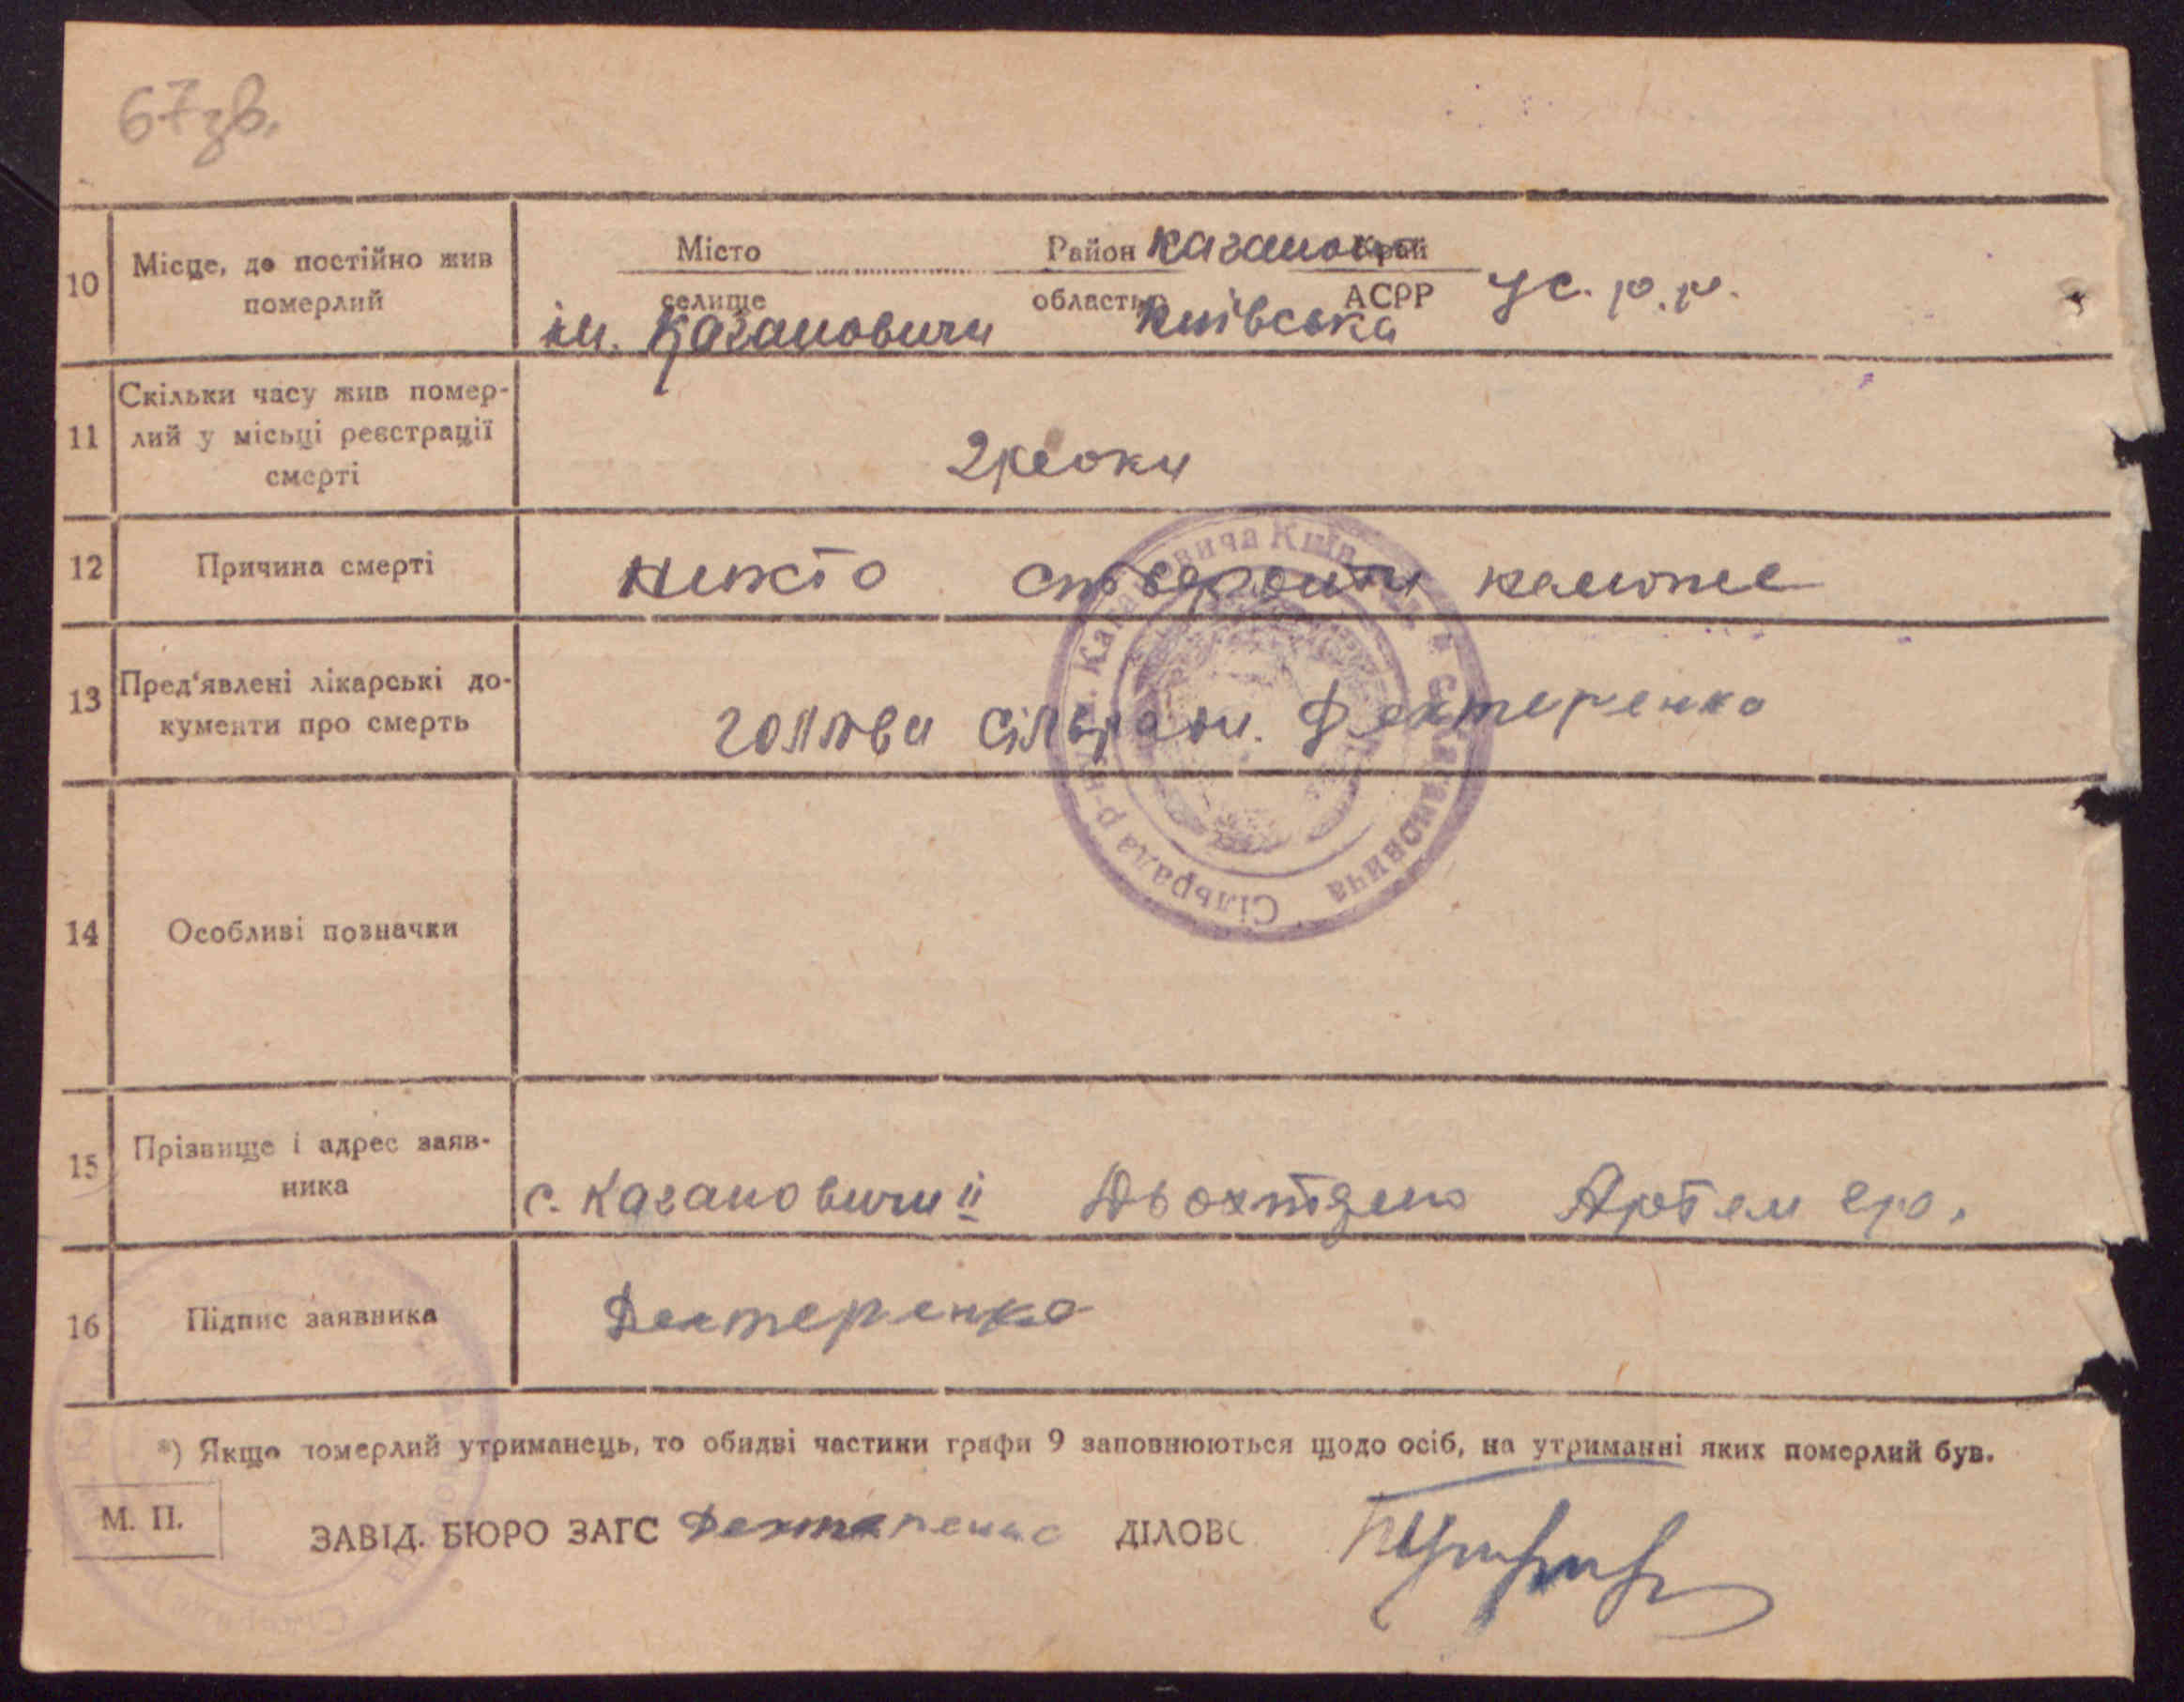 67зв.
10 Місце, де постійно жив Місто Район Каганов Край
померлий селище область АСРР УС.Р.Р.
ім. Кагановичи Київська
11 Скільки часу жив помер-
лий у місьці реєстрації
смерті
2 роки
12 Причина смерті
13 Пред'явлені лікарські до-
кументи про смерть
голова сільради. Дехтеренко
14 Особливі позначки
Сільрада р-ну ім. Кагановича Київ
Кагановича
15 Прізвище і адрес заяв-
ника
с. Кагановичи II Артем
16 Підпис заявника Дехтеренко
*) Якщо померлий утриманець, то обидві частини графи 9 заповнюються щодо осіб, на утриманні яких померлий був.
М. П.
ЗАВІД. БЮРО ЗАГС Дехтеренко ДІЛОВО